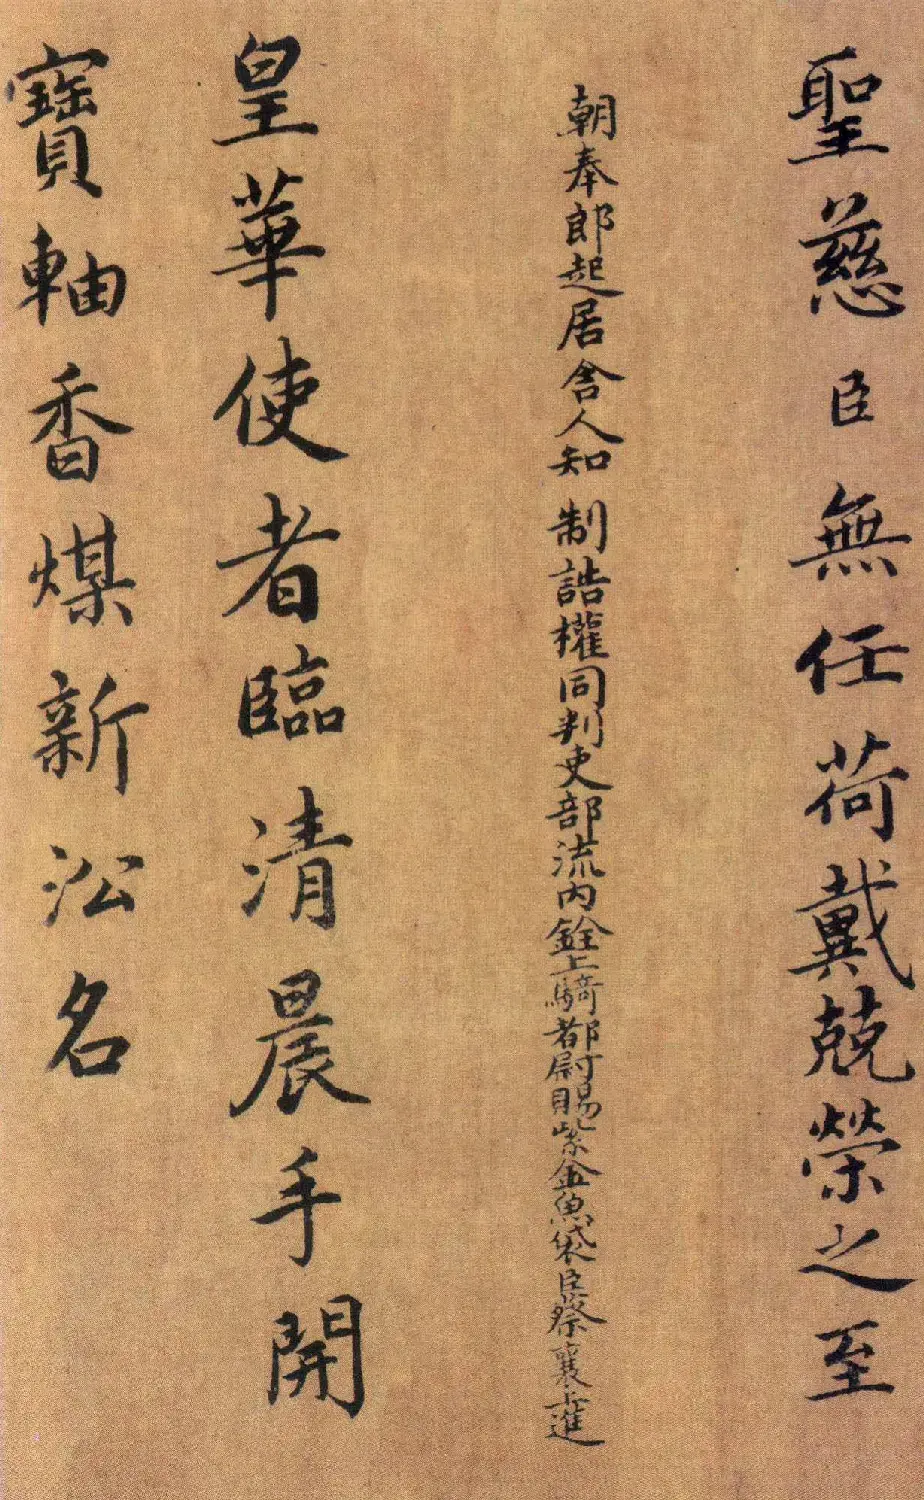 聖慈臣無任荷戴兢榮之至
朝奉郎起居舍人知制誥權同判吏部流內銓上騎都尉賜紫金魚袋臣蔡襄上進
皇華使者臨清晨手開
寶軸香煤新沿名